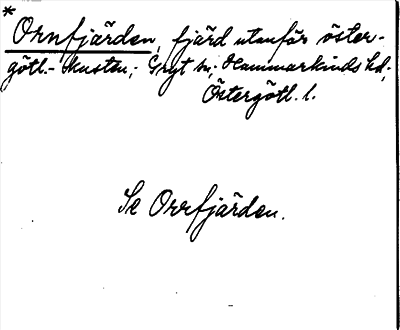 *
Ornfjärden, fjärd utanför öster-
götl.-kusten; Gryt sn; Hammarkinds hd,
Östergötl. l.
Se Orrfjärden.